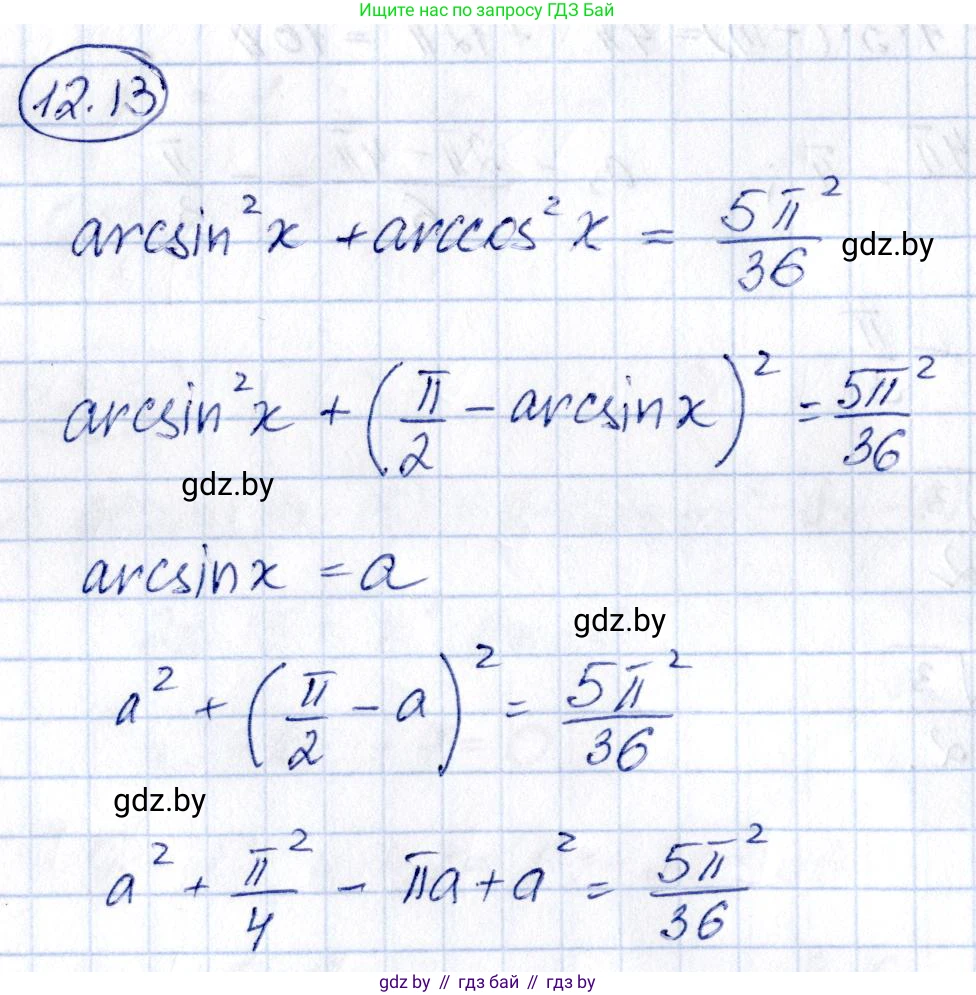 Ищите нас по запросу ГДЗ Бай
12.13
arcsin²x + arccos²x = 5π²/36
gdz.by
arcsin²x + (π/2 - arcsinx)² = 5π²/36
gdz.by
arcsinx = a
gdz.by
a² + (π/2 - a)² = 5π²/36
gdz.by
a² + π²/4 - πa + a² = 5π²/36
gdz.by // гдз бай // гдз by